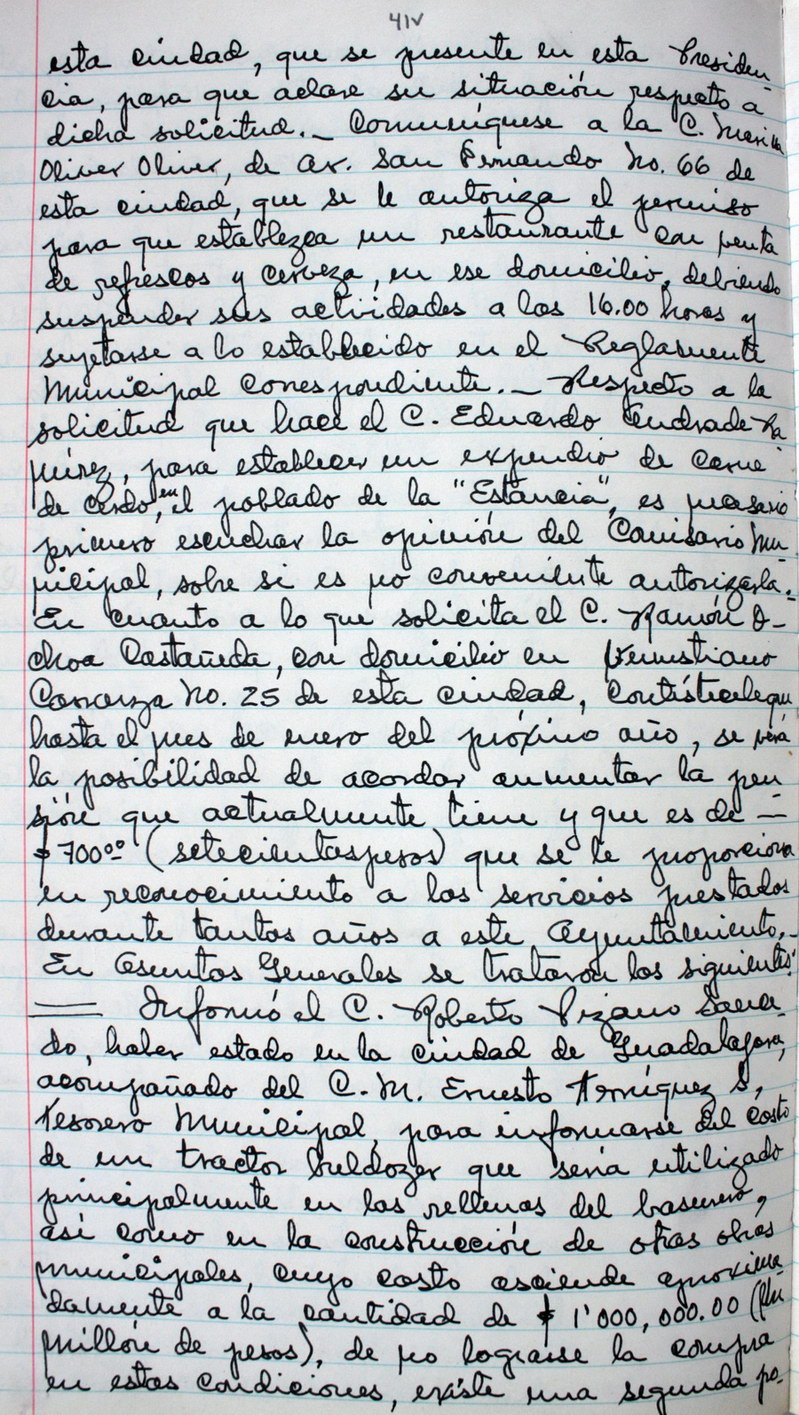 41v
esta ciudad, que se presente en esta Presiden-
cia, para que aclare su situación respecto a
dicha solicitud._ Comuníquese a la C. Maria
Oliver Oliver, de av. San Fernando No. 66 de
esta ciudad, que se le autoriza el permiso
para que establezca un restaurante con venta
de refrescos y cerveza, en ese domicilio, debiendo
suspender sus actividades a las 16.00 horas y
sujetarse a lo establecido en el Reglamento
Municipal correspondiente._ Respecto a la
solicitud que hace el C. Eduardo Andrade Ra
mírez, para establecer un expendio de carne
de cerdo, en el poblado de la "Estancia", es necesario
primero escuchar la opinión del Comisario Mu-
nicipal, sobre si es no conveniente autorizarla.
En cuanto a lo que solicita el C. Ramón O-
choa Castañeda, con domicilio en Venustiano
Carranza No. 25 de esta ciudad, contéstesele que
hasta el mes de enero del próximo año, se verá
la posibilidad de acordar aumentar la pen
sión que actualmente tiene y que es de —
$700.00 (setecientos pesos) que se le proporciona
en reconocimiento a los servicios prestados
durante tantos años a este Ayuntamiento._
En Asuntos Generales se trataron los siguientes:
—— Informó el C. Roberto Pizano
do, haber estado en la ciudad de Guadalajara,
acompañado del C. M. Ernesto S,
Tesorero Municipal, para informarse del costo
de un tractor buldozer que sería utilizado
principalmente en los rellenos del basurero,
así como en la construcción de otras obras
municipales, cuyo costo asciende aproxima
damente a la cantidad de $ 1'000,000.00 (Un
millón de pesos), de no lograrse la compra
en estas condiciones, existe una segunda po-